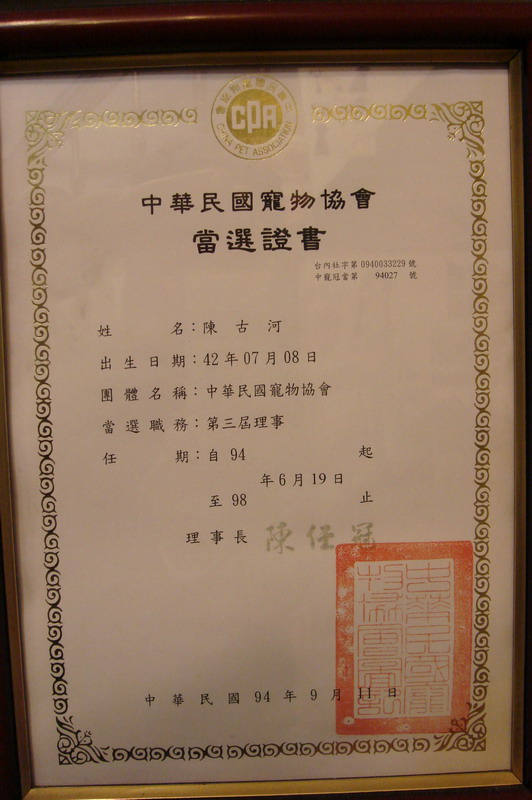 中華民國寵物協會
CPA
CHINA PET ASSOCIATION
中華民國寵物協會
當選證書
台內社字第0940033229號
中寵冠當第 94027 號
姓名：陳古河
出生日期：42年07月08日
團體名稱：中華民國寵物協會
當選職務：第三屆理事
任期：自94 起
年6月19日
至98 止
理事長 陳任冠
中華民國94年9月11日